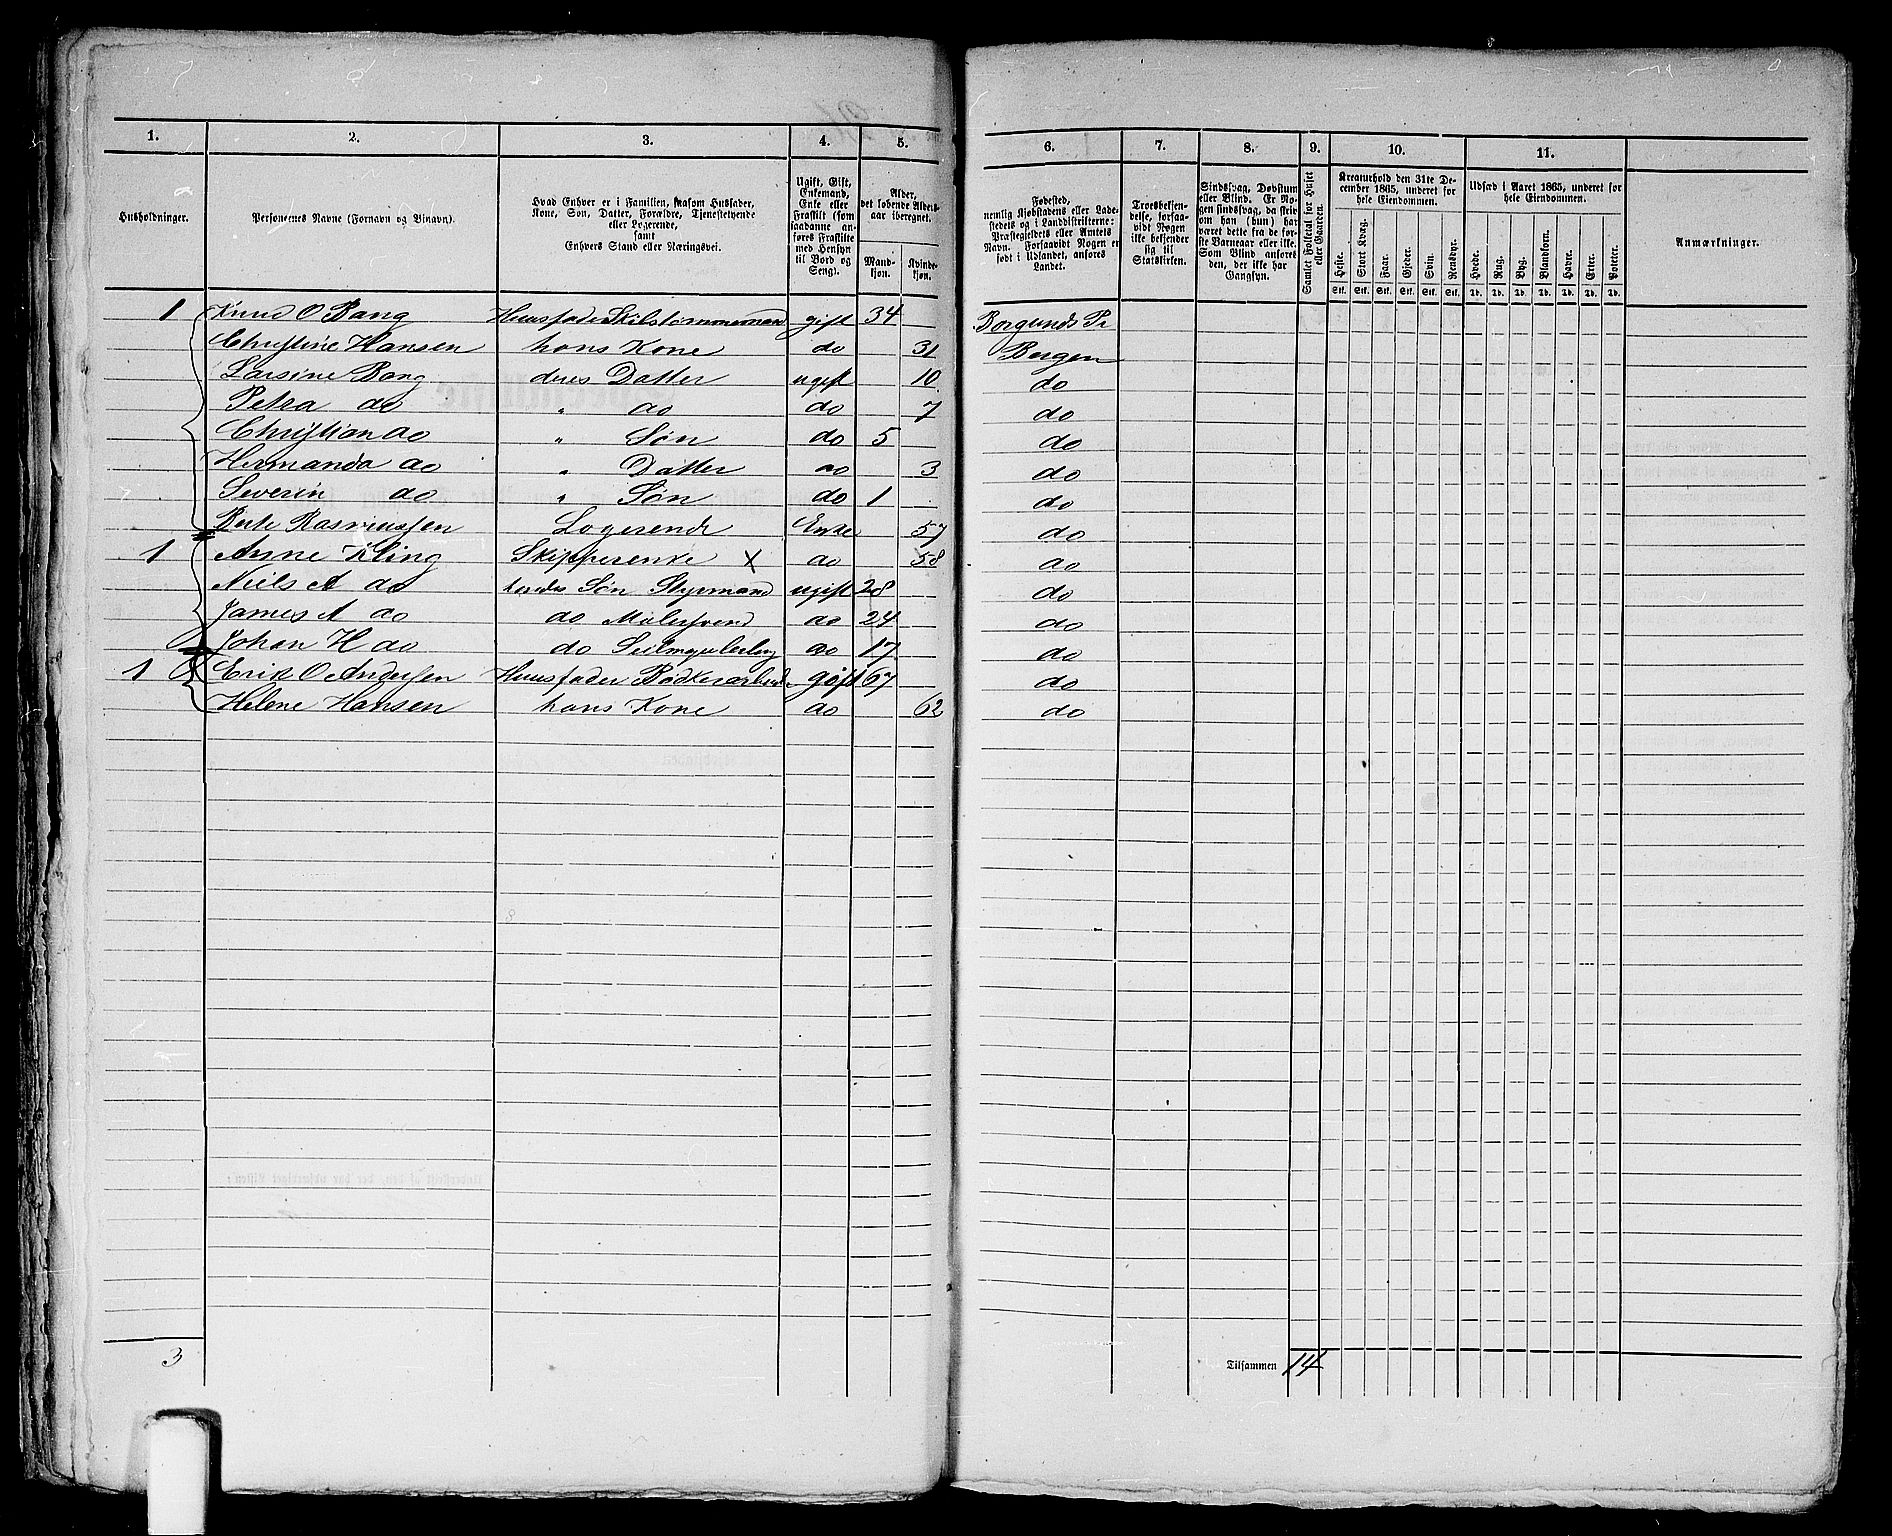 1. 2. 3. 4. 5. 6. 7. 8. 9. 10. 11.
Husholdninger.
Personernes Navne (Fornavn og Tilnavn).
Hvad Enhver er i Familien, saasom Husfader,
Kone, Søn, Datter, Forældre, Tjenestetyende
eller Logerende,
samt
Enhvers Stand eller Næringsvei.
Ugift, Gift,
Enkemand,
Enke eller
Fraskilt (som
saadanne an-
føres Fraskilte
med Hensyn
til Bord og
Seng).
Alder,
det løbende Alders-
aar iberegnet.
Mand-
kjøn.
Kvinde-
kjøn.
Fødested,
nemlig Kjøbstadens eller Lade-
stedets og i Landdistrikterne:
Præstegjeldets eller Amtets
Navn. Forsaavidt Nogen er
født i Udlandet, anføres
Landet.
Troesbekjen-
delse, forsaa-
vidt Nogen
ikke bekjender
sig til
Statskirken.
Sindssvag, Døvstum
eller Blind. Er No-
gen sindssvag, da skri-
ves om han (hun) har
været dette fra de før-
ste Barneaar eller ikke.
Som Blind anføres
den, der ikke har
Gangsyn.
Samlet Folketal for Huset
eller Gaarden.
Kreaturhold den 31te De-
cember 1865, underet for
hele Eiendommen.
Heste. Stort Kvæg. Faar. Gjeder. Svin. Rensdyr.
Stk. Stk. Stk. Stk. Stk. Stk.
Udsæd i Aaret 1865, underet for
hele Eiendommen.
Hvede. Rug. Byg. Blandkorn. Havre. Erter. Poteter.
Td. Td. Td. Td. Td. Td. Td.
Anmærkninger.
1 Knud O Bang Huusfader Skibstømmermand gift 34 Borgunds Pr
Christine Hansen hans Kone do 31 Bergen
Larsine Bang deres Datter ugift 10 do
Petra do " do do 7 do
Christian do " Søn do 5 do
Hermanda do " Datter do 3 do
Severin do " Søn do 1 do
Berte Rasmussen Logerende Enke 57 do
1 Anne Kling Skipperenke X do 58 do
Niels A do hendes Søn Styrmand ugift 28 do
James A do do Malersvend do 24 do
Johan H do do do 17 do
1 Erik O Andersen Huusfader Bødkerarbeider gift 67 do
Helene Hansen hans Kone do 62 do
3 Tilsammen 14